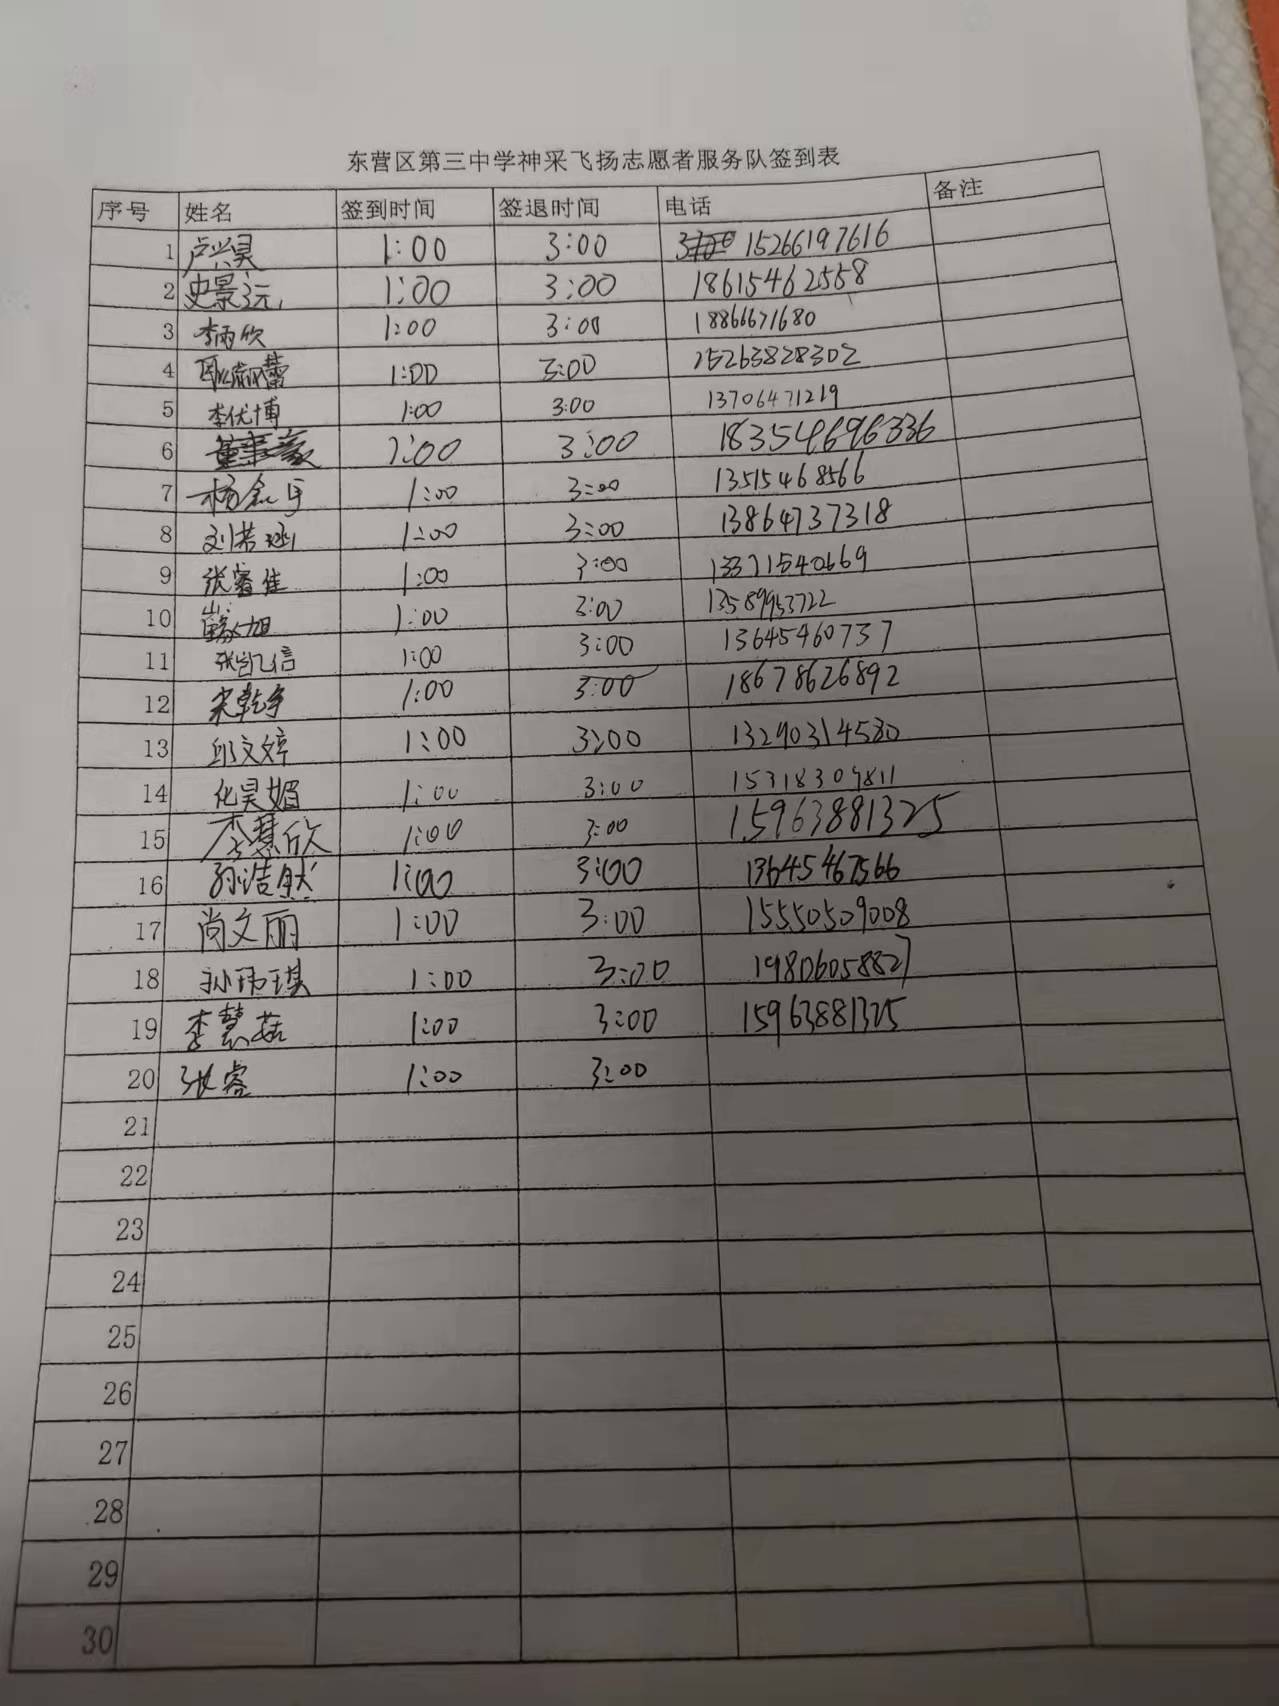 东营区第三中学神采飞扬志愿者服务队签到表
序号 姓名 签到时间 签退时间 电话 备注
1 卢兴昊 1:00 3:00 15266197616
2 史景元 1:00 3:00 18615462558
3 李雨欣 1:00 3:00 18866671680
4 1:00 3:00 15263828302
5 李优博 1:00 3:00 13706471219
6 1:00 3:00 18354696336
7 杨 1:00 3:00 13515468566
8 刘若涵 1:00 3:00 13864737318
9 张睿佳 1:00 3:00 13371540669
10 1:00 3:00 13589953722
11 张凯信 1:00 3:00 13645460737
12 宋乾宇 1:00 3:00 18678626892
13 邱文婷 1:00 3:00 13290314580
14 化昊媚 1:00 3:00 15318309811
15 李慧欣 1:00 3:00 15963881325
16 孙浩然 1:00 3:00 13645467566
17 尚文丽 1:00 3:00 15550509008
18 孙玮琪 1:00 3:00 19806058827
19 李慧茹 1:00 3:00 15963881325
20 张睿 1:00 3:00
21
22
23
24
25
26
27
28
29
30